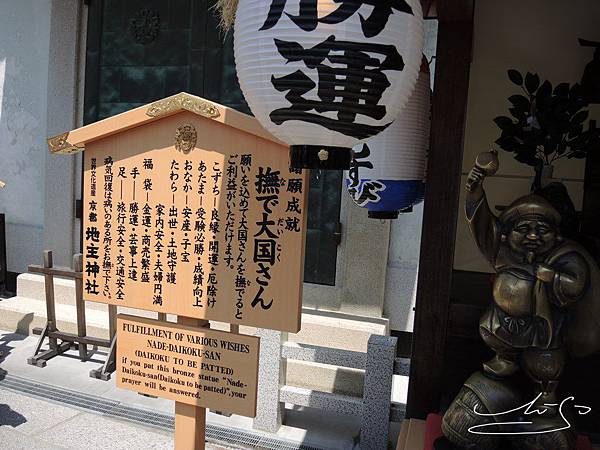 勝運
諸願成就
撫で大国さん
願いを込めて大国さんを撫でると
ご利益がいただけます。
こずち―良縁・開運・厄除け
あたま―受験必勝・成績向上
おなか―安産・子宝
たわら―出世・土地守護
家内安全・夫婦円満
福袋―金運・商売繁盛
手―勝運・芸事上達
足―旅行安全・交通安全
病気回復は病いのある所をお撫で下さい。
世界文化遺産 京都 地主神社
FULFILLMENT OF VARIOUS WISHES
NADE-DAIKOKU-SAN
(DAIKOKU TO BE PATTED)
if you pat this bronze statue "Nade-
Daikoku-san(Daikoku to be patted)",your
prayer will be answered.